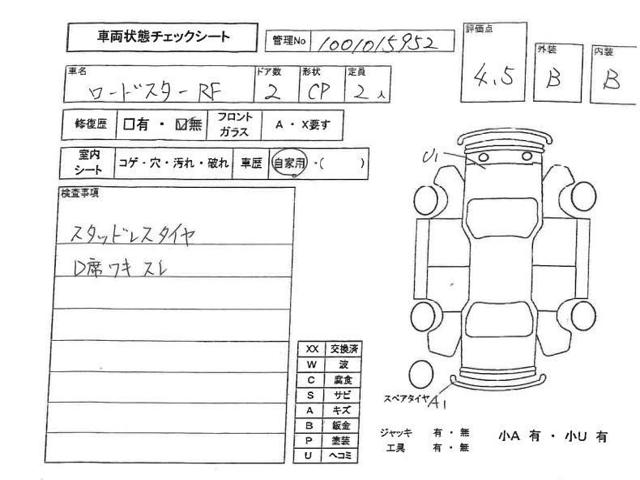 車両状態チェックシート 管理No 1001015952
評価点 4.5 外装 B 内装 B
車名 ロードスターRF ドア数 2 形状 CP 定員 2人
修復歴 □有 ・ ☑無 フロントガラス A ・ X要す
室内シート コゲ・穴・汚れ・破れ 車歴 自家用・( )
検査事項
スタッドレスタイヤ
D席ワキ スレ
U1
XX 交換済
W 波
C 腐食
S サビ
A キズ
B 鈑金
P 塗装
U ヘコミ
スペアタイヤ A1
ジャッキ 有 ・ 無
工具 有 ・ 無
小A 有 ・ 小U 有